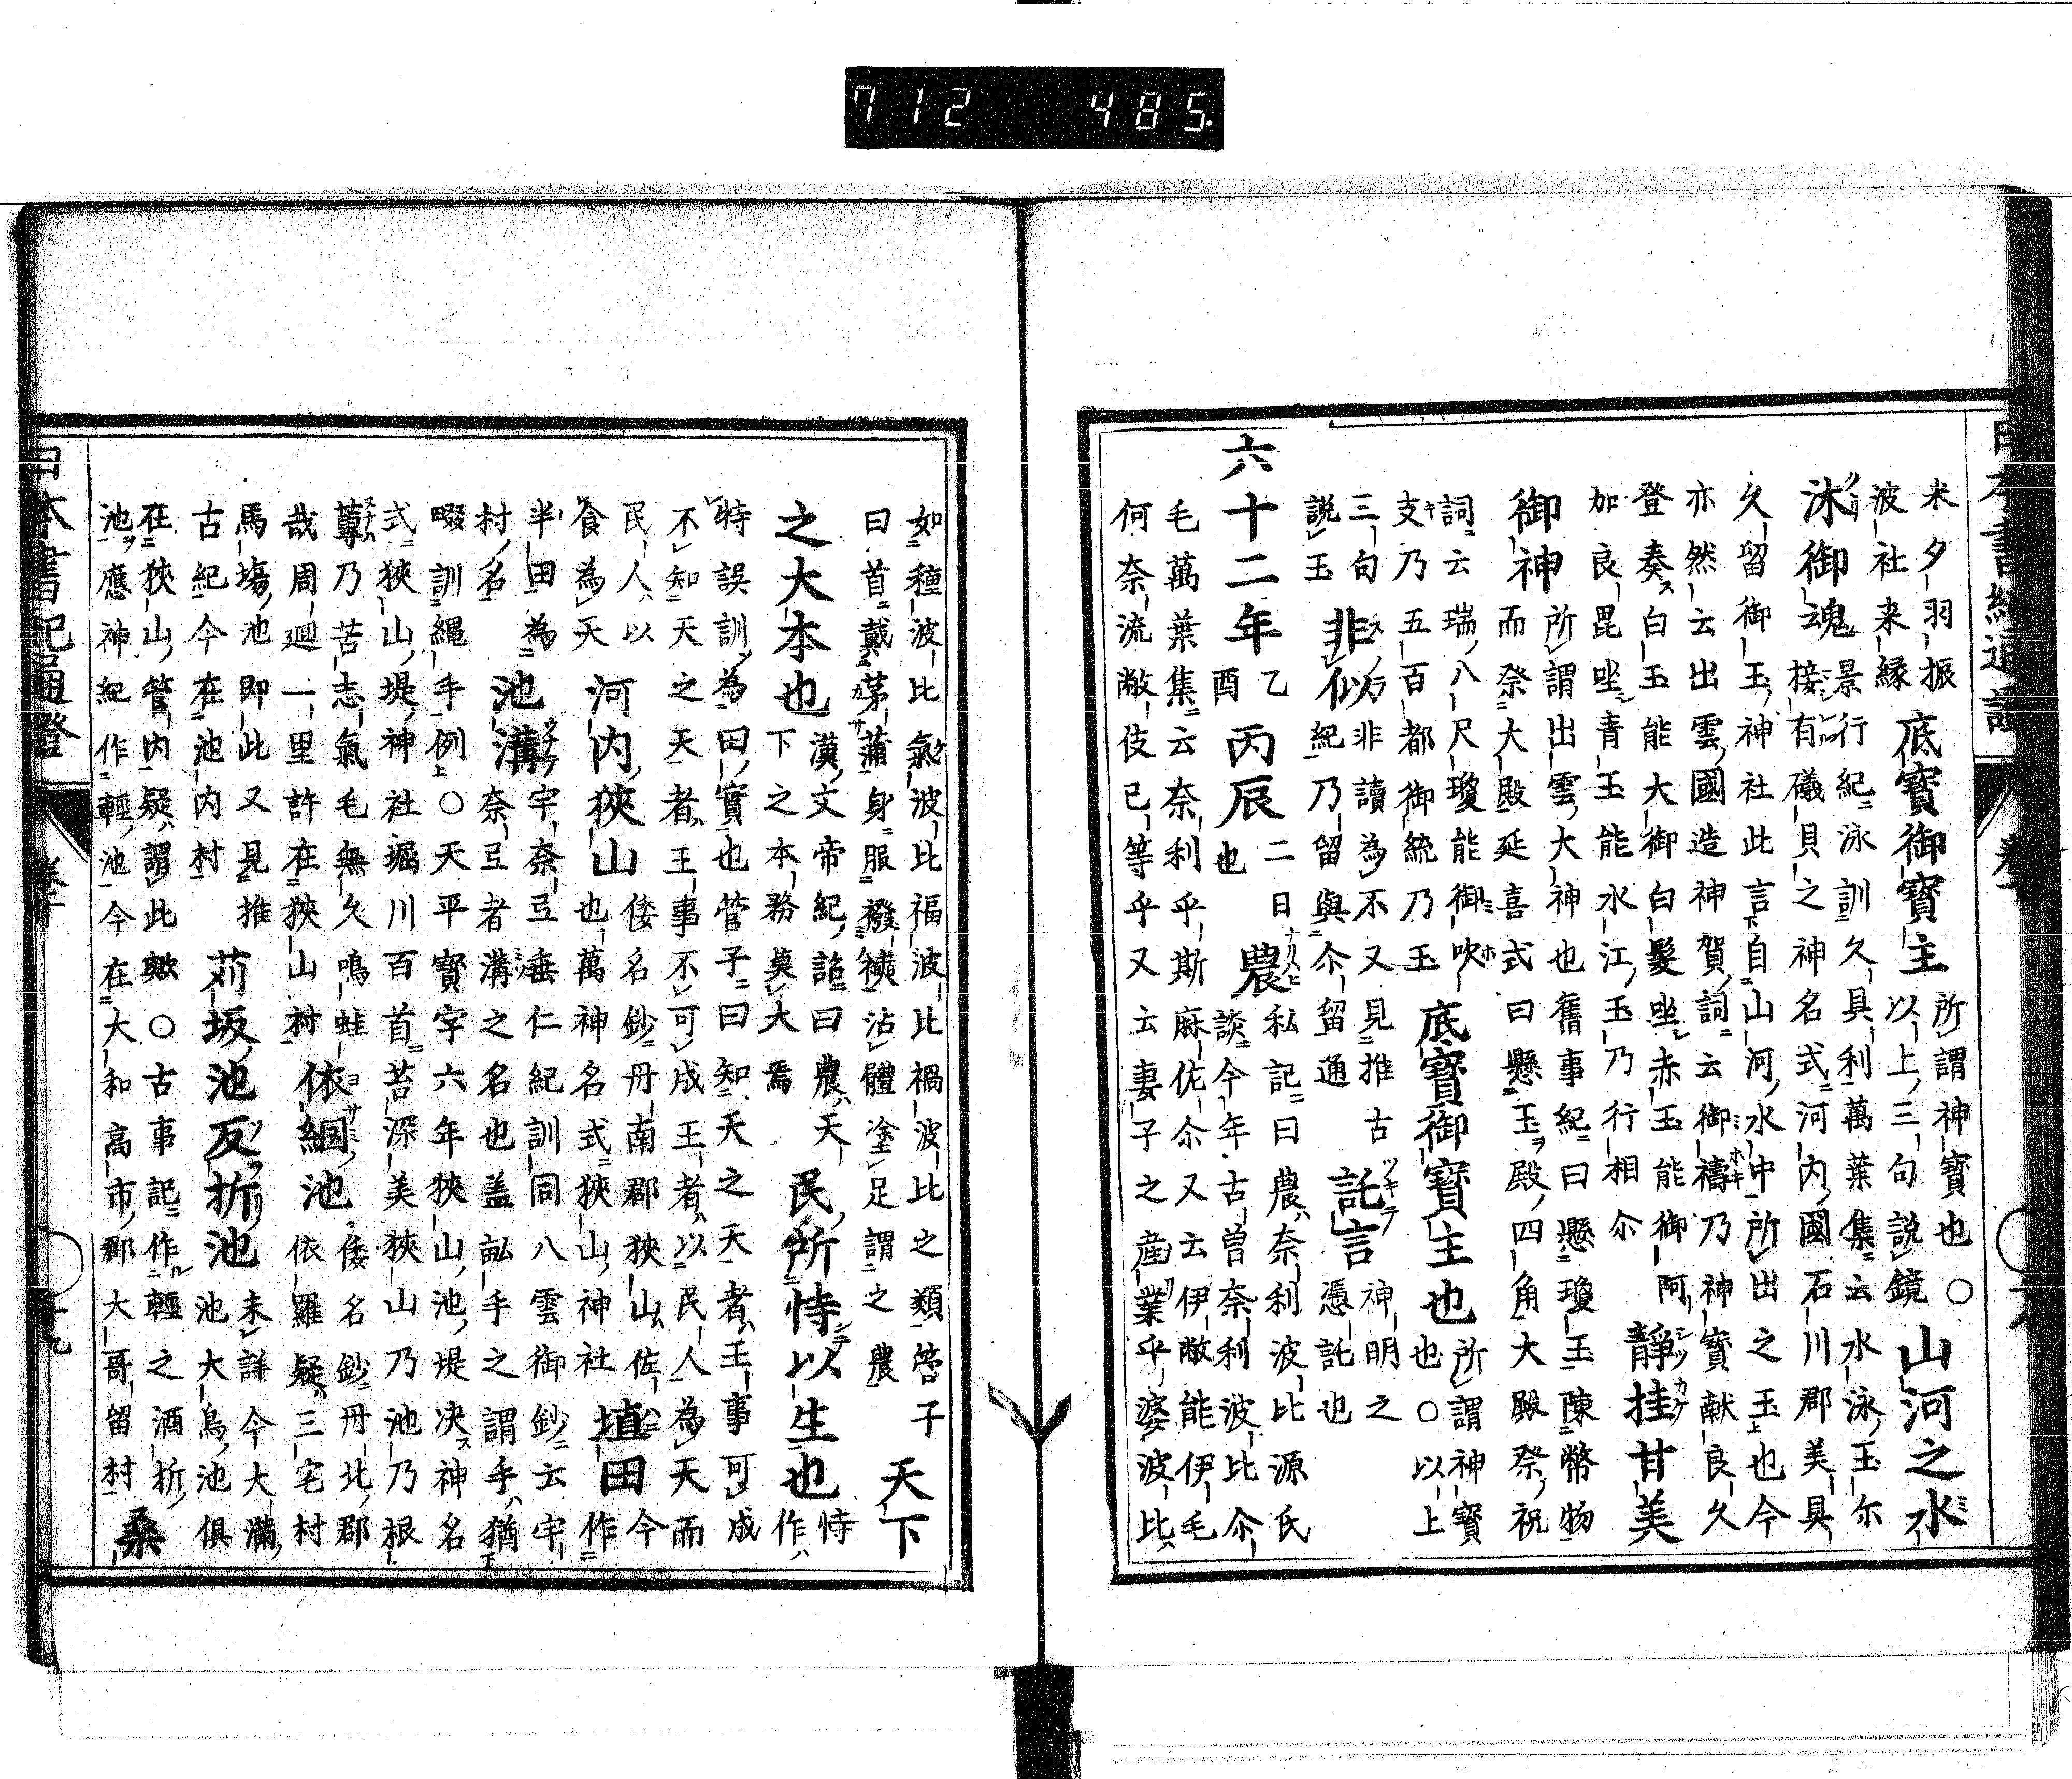 米夕羽振
波社来縁
底寶御寶主
所謂神寶也○
以上三句説鏡
山河之水
泳御魂
景行紀泳訓久具利萬葉集云水泳玉尓
接有礒貝之神名式河内國石川郡美具
久留御玉神社此言自山河水中所出之玉也今
亦然云出雲國造神賀詞云御禱乃神寶献良久
登奏白玉能大御白髪坐赤玉能御阿
加良毘坐青玉能水江玉乃行相尒
靜挂甘美
御神
所謂出雲大神也舊事紀曰懸瓊玉陳幣物
而祭大殿延喜式曰懸玉殿四角大殿祭祝
詞云瑞八尺瓊能御吹
支乃五百都御統乃玉
底寶御寶主也
所謂神寶
也○以上
三句
説玉
非似
非讀為不又見推古
紀乃留與尒留通
託言
神明之
憑託也
六十二年
乙
酉
丙辰
二日
也
農
私記曰農奈利波比源氏
談今年古曽奈利波比尒
毛萬葉集云奈利乎斯麻佐尒又云伊敝能伊毛
何奈流敝伎已等乎又云妻子之産業乎婆波比
如種波比氣波比福波比禍波比之類管子
曰首戴茅蒲身服襏襫沾體塗足謂之農
天下
之大本也
漢文帝紀詔曰農天
下之本務莫大焉
民所恃以生也
恃
作
特誤訓為田實也管子曰知天之天者王事可成
不知天之天者王事不可成王者以民人為天而
民人以
食為天
河内狹山
倭名鈔丹南郡狹山佐
也萬神名式狹山神社
埴田
今
作
半田為
村名
池溝
宇奈亙垂仁紀訓同八雲御鈔云宇
奈亙者溝之名也盖畝手之謂手猶
畷訓繩手例○天平寳字六年狹山池堤决神名
式狹山堤神社堀川百首苔深美狹山乃池乃根
蓴乃苦志氣毛無久鳴蛙
哉周廻一里許在狹山村
依網池
倭名鈔丹北郡
依羅疑三宅村
馬塲池即此又見推
古紀今在池内村
苅坂池反折池
未詳今大滿
池大鳥池俱
在狹山管内疑謂此歟○古事記作輕之酒折
池應神紀作輕池今在大和高市郡大哥留村
桑
日本書紀通證
712 485